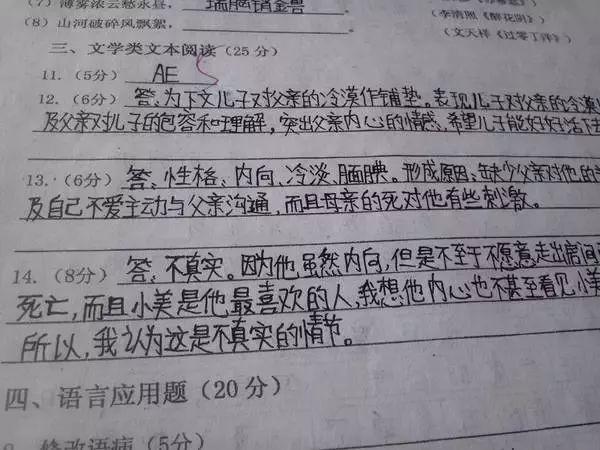 (7) 薄雾浓云愁永昼，瑞脑销金兽
(8) 山河破碎风飘絮，
(李清照《醉花阴》)
(文天祥《过零丁洋》)
三、文学类文本阅读（25 分）
11.（5分） AE 5
12.（6分） 答、为下文儿子对父亲的冷漠作铺垫。表现儿子对父亲的冷漠
及父亲对儿子的包容和理解，突出父亲内心的情感，希望儿子能好好活下去
13.（6分） 答、性格、内向、冷淡、腼腆。形成原因、缺少父亲对他的
及自己不爱主动与父亲沟通，而且母亲的死对他有些刺激。
14.（8分） 答、不真实。因为他虽然内向，但是不至于不愿意走出房间
死亡，而且小美是他最喜欢的人，我想他内心也不甚至看见小美
所以，我认为这是不真实的情节。
四、语言应用题（20 分）
修改语病（5分）